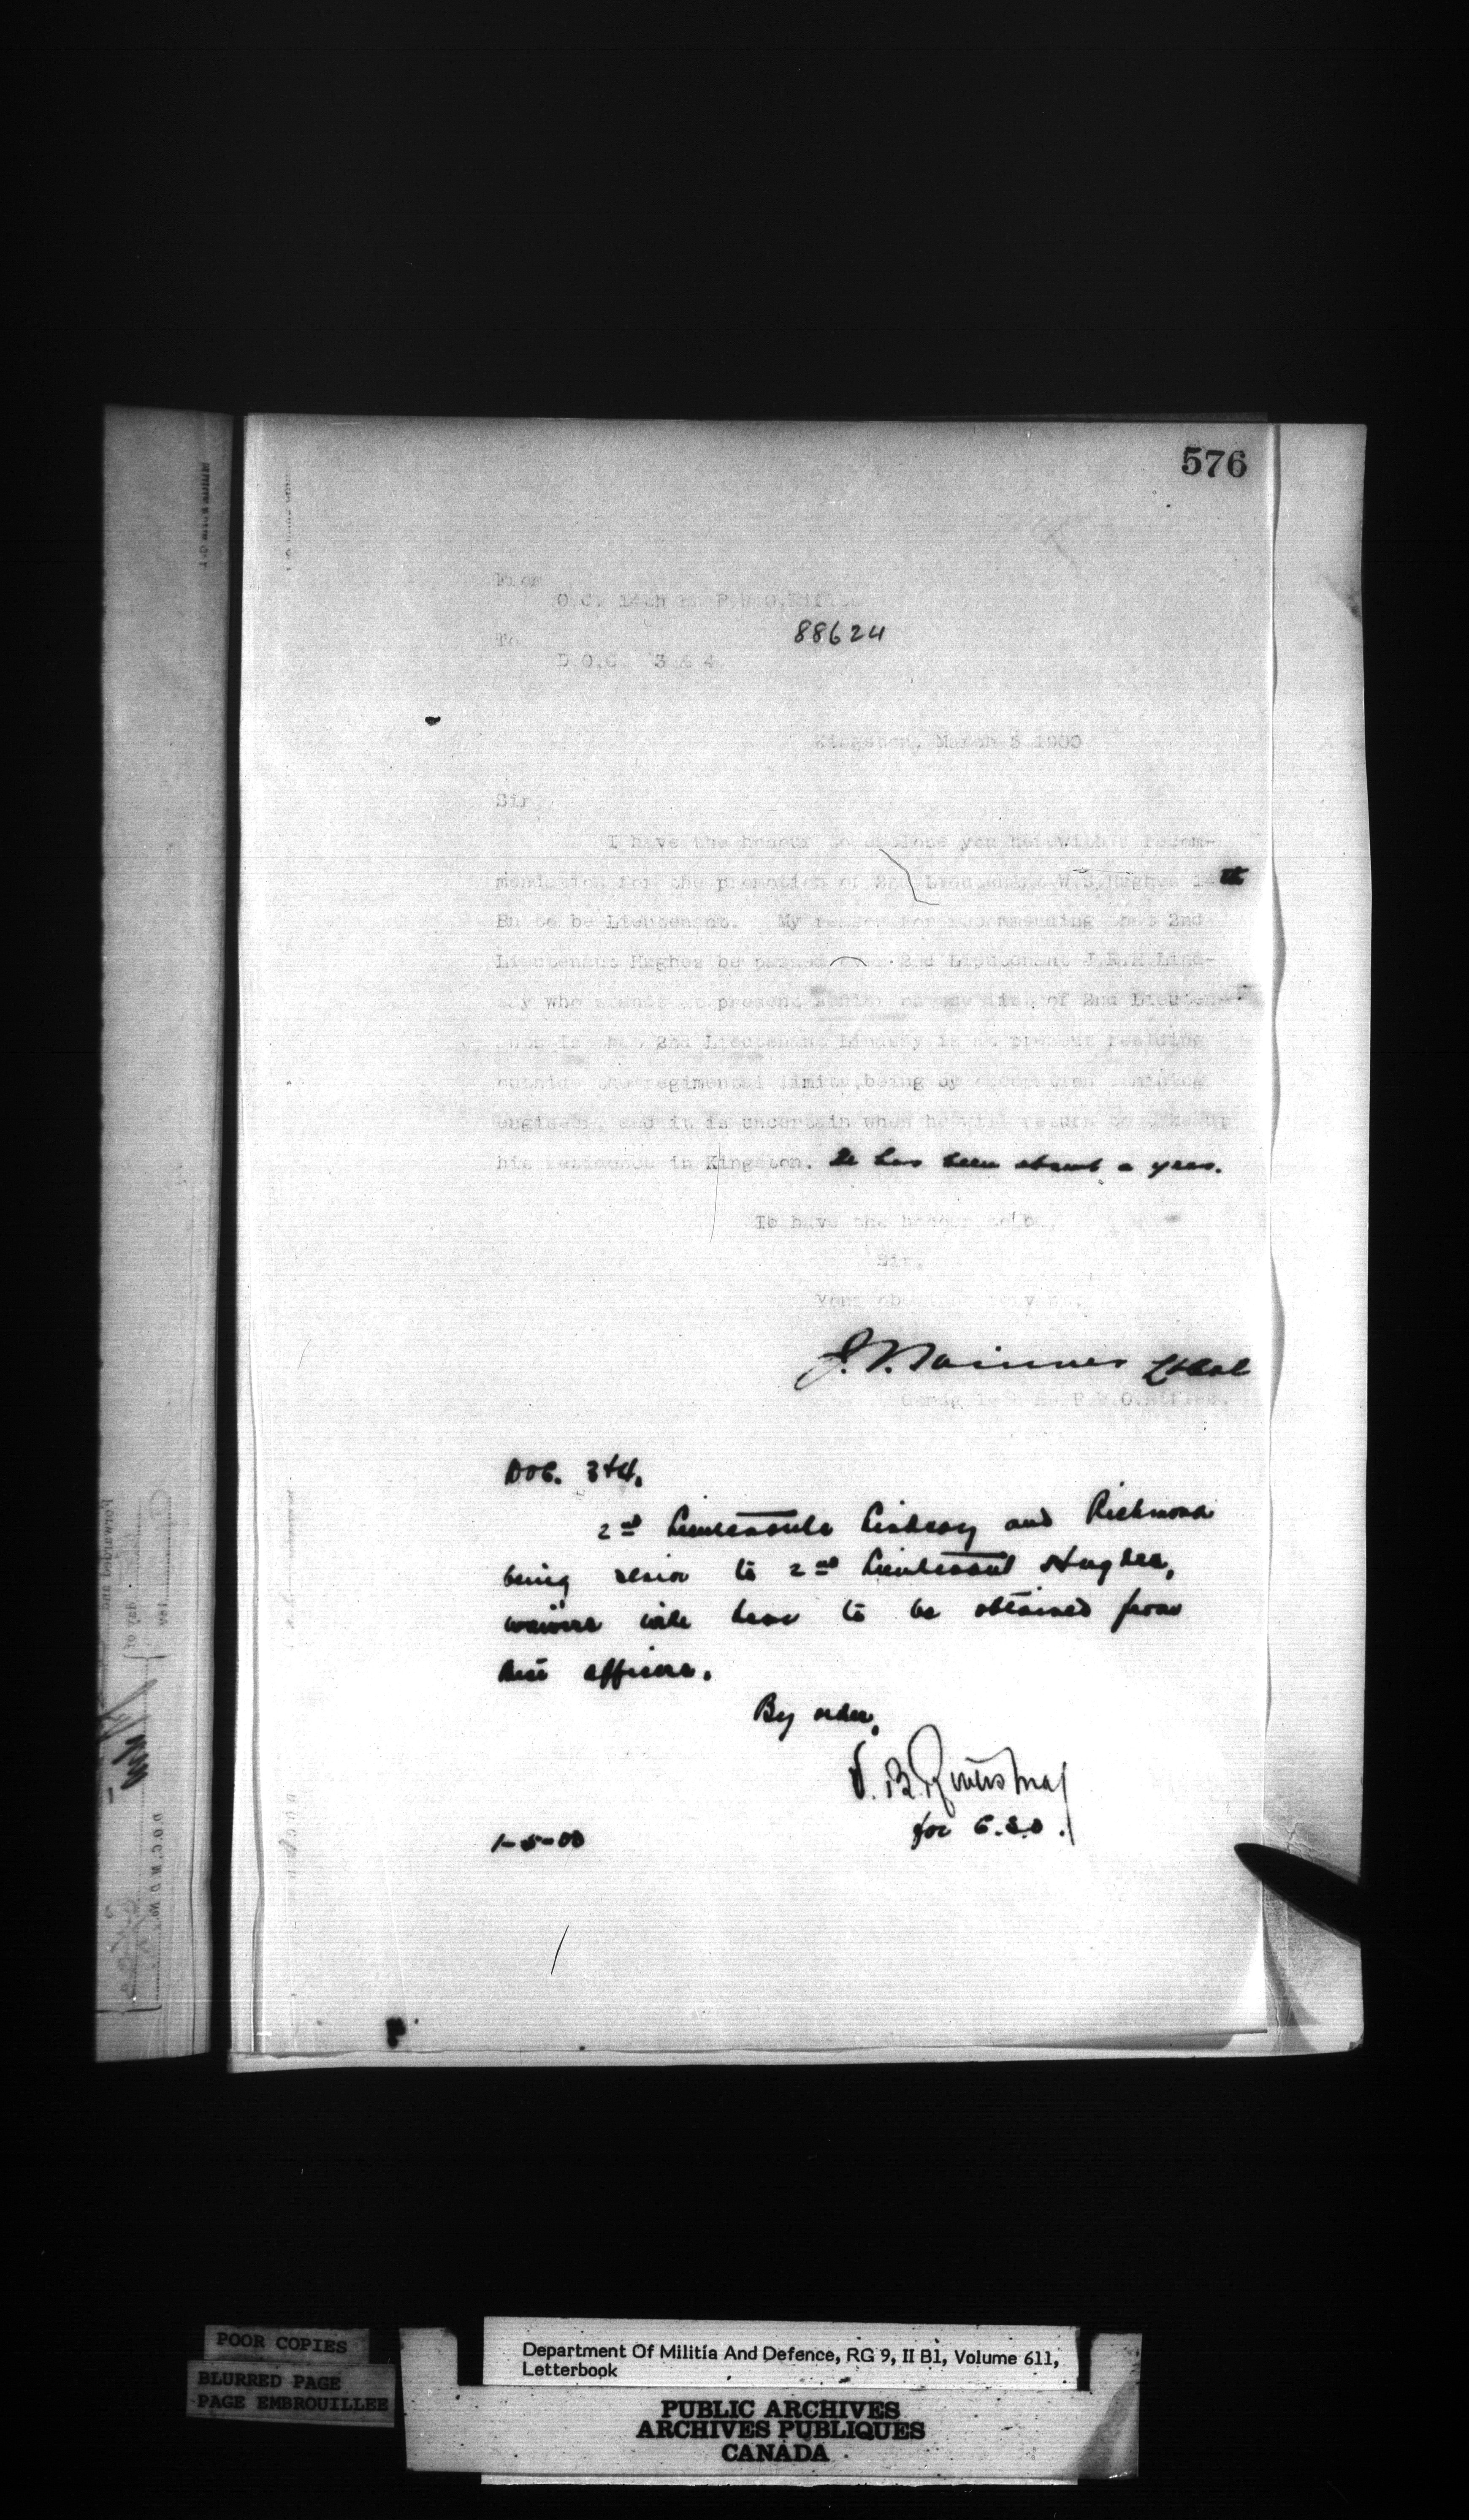 576
From
O.C. 14th Bn P.W.O.Rifles
88624
To
D.O.C. 3 & 4.
Kingston, March 5 1900
Sir,
I have the honour to enclose you herewith a recom-
mendation for the promotion of 2nd Lieutenant W.S.Hughes 14th
Bn to be Lieutenant. My reason for recommending that 2nd
Lieutenant Hughes be passed over 2nd Lieutenant J.E.M.Lind-
say who stands at present senior on the list of 2nd Lieuten-
ants is that 2nd Lieutenant Lindsay is at present residing
outside the regimental limits, being by occupation a mining
engineer, and it is uncertain when he will return to take up
his residence in Kingston. He has been absent a year.
I have the honour to be,
Sir,
Your obedient servant.
Lt Col
Comdg 14th Bn P.W.O.Rifles.
DOC. 3 & 4.
2nd Lieutenants Lindsay and Richmond
being senior to 2nd Lieutenant Hughes,
waivers will have to be obtained from
officers.
By order,
for C.S.O.
1-5-00
Forwarded and
day of
D.O.C. M.D. No.
POOR COPIES
BLURRED PAGE
PAGE EMBROUILLEE
Department Of Militia And Defence, RG 9, II B1, Volume 611,
Letterbook
PUBLIC ARCHIVES
ARCHIVES PUBLIQUES
CANADA